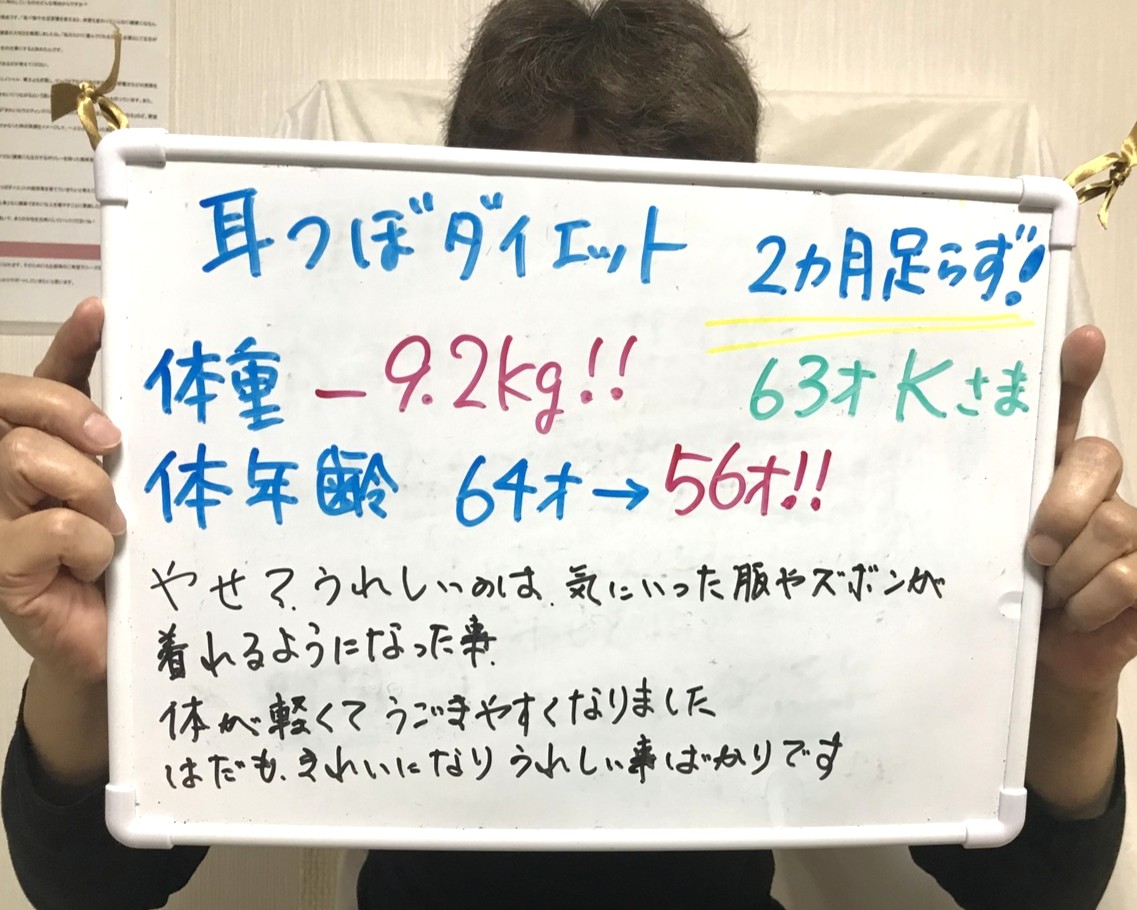 耳つぼダイエット
2カ月足らず!
体重 -9.2kg!!
63才 Kさま
体年齢 64才→56才!!
やせて、うれしいのは、気にいった服やズボンが
着れるようになった事、
体が軽くてうごきやすくなりました
はだも、きれいになりうれしい事ばかりです